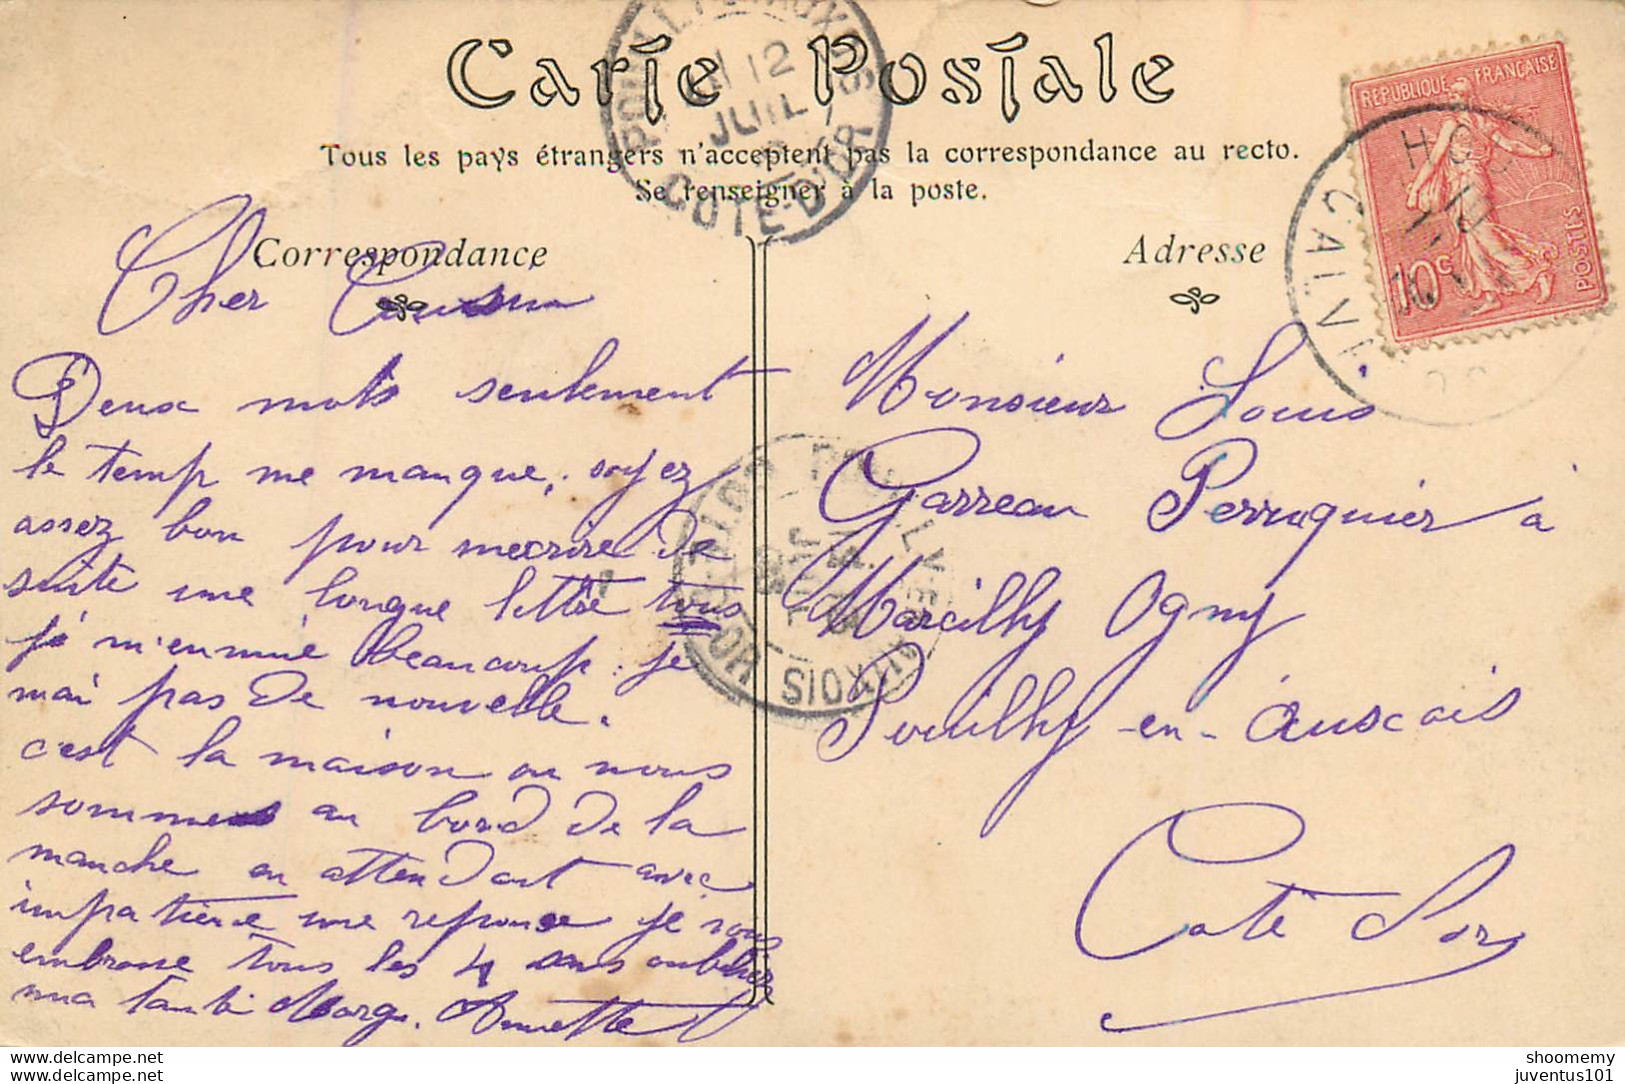 Carte Postale
Tous les pays étrangers n'acceptent pas la correspondance au recto.
Se renseigner à la poste.
Correspondance
Cher Cousin
Deux mots seulement
le temp me manque, soyez
assez bon pour mecrire de
suite une longue lettre tous
je m'ennuie beaucoup. je
mai pas de nouvelle.
c'est la maison ou nous
sommes au bord de la
manche en attendant avec
impatience une reponse je vous
embrasse tous les 4 sans oublier
ma tante Marg. Annette
Adresse
Monsieur Louis
Garreau Perruquier à
Marcilly Ogny
Pouilly-en-Auxois
Cote d'or
REPUBLIQUE FRANÇAISE
POSTES
10c
12
JUIL
COTE-D'OR
CALV
juventus101
shoomemy
juventus101